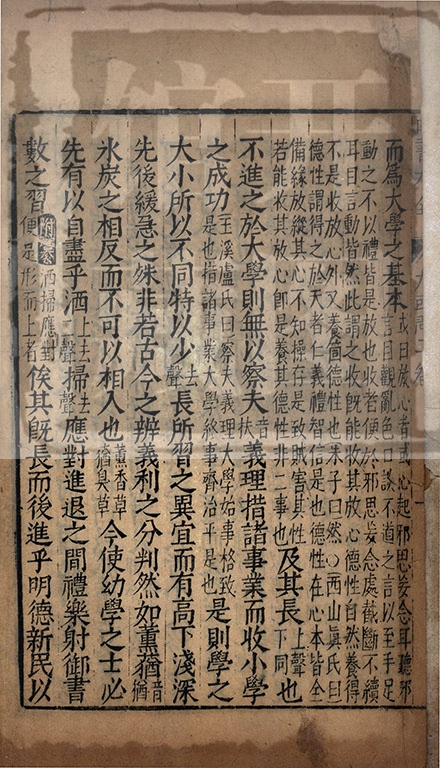 而為大學之基本或曰放心者或心起邪思妄念耳聽邪言目觀亂色口談不道之言以至手足
動之不以禮皆是放也收者便於邪思妄念處截斷不續耳目言動皆然此謂之收既能收其放心德性自然養得
不是收放心外又養箇德性也朱子曰然○西山真氏曰德性謂得之於天者仁義禮智信是也德性在心本皆全
備緣放縱其心不知操存是致賊害其性若能收其放心即是養其德性非二事也及其長上聲下同也
不進之於大學則無以察夫音扶義理措諸事業而收小學
之成功玉溪盧氏曰察夫義理大學始事格致是也措諸事業大學終事齊治平是也是則學之
大小所以不同特以少去聲長所習之異宜而有高下淺深
先後緩急之殊非若古今之辨義利之分判然如薰蕕音猶
氷炭之相反而不可以相入也薰香草蕕臭草今使幼學之士必
先有以自盡乎洒上聲掃去聲應對進退之間禮樂射御書
數之習附蒙洒掃應對便是形而上者俟其既長而後進乎明德新民以